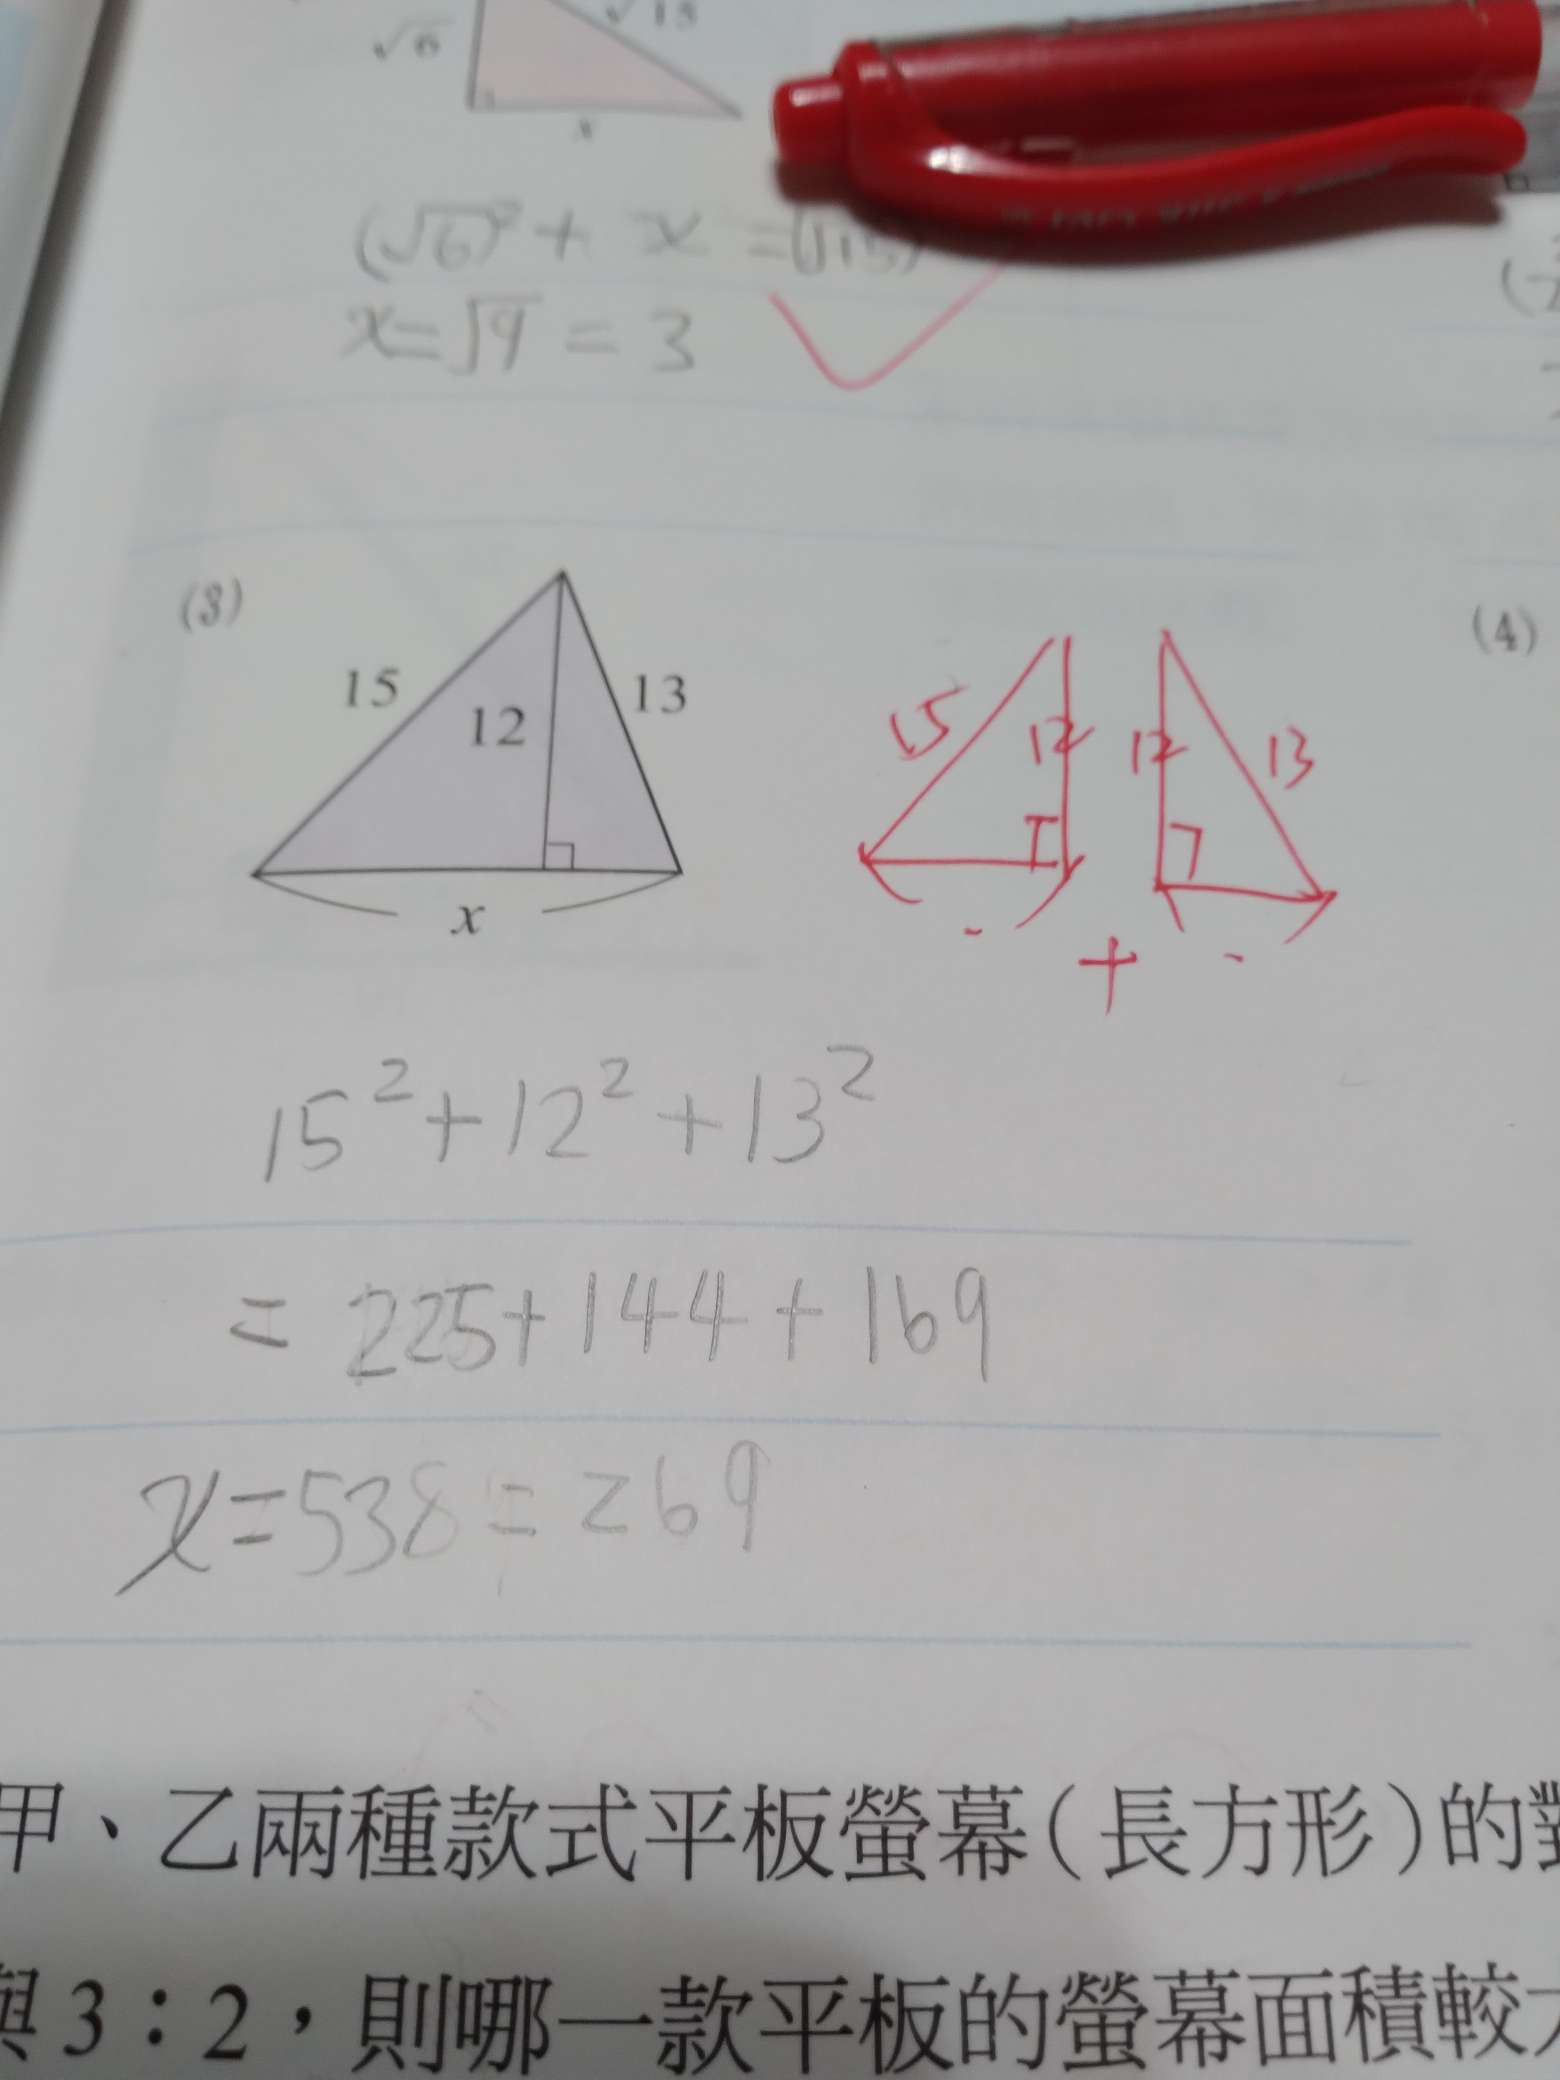 √6 √15
x
(√6)² + x = (√15)
x=√9 = 3
(3)
(4)
15 12 13
x
15 12 12 13
+
15² + 12² + 13²
= 225 + 144 + 169
x = 538 = 269
甲、乙兩種款式平板螢幕(長方形)的
3:2,則哪一款平板的螢幕面積較